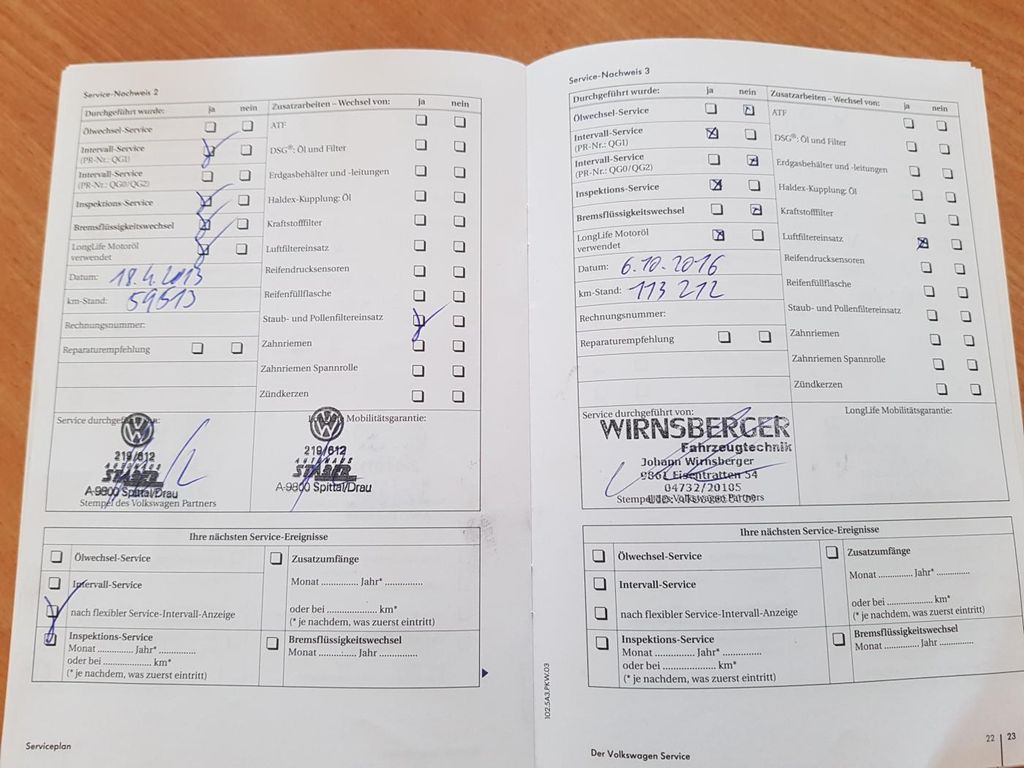 Service-Nachweis 2
Durchgeführt wurde: ja nein
Ölwechsel-Service
Intervall-Service
(PR-Nr.: QG1)
Intervall-Service
(PR-Nr.: QG0/QG2)
Inspektions-Service
Bremsflüssigkeitswechsel
LongLife Motoröl
verwendet
Datum: 18.4.2013
km-Stand: 59513
Rechnungsnummer:
Reparaturempfehlung
Zusatzarbeiten – Wechsel von: ja nein
ATF
DSG®: Öl und Filter
Erdgasbehälter und -leitungen
Haldex-Kupplung: Öl
Kraftstofffilter
Luftfiltereinsatz
Reifendrucksensoren
Reifenfüllflasche
Staub- und Pollenfiltereinsatz
Zahnriemen
Zahnriemen Spannrolle
Zündkerzen
Service durchgeführt von:
219/612
AUTOHAUS
A-9800 Spittal/Drau
Stempel des Volkswagen Partners
LongLife Mobilitätsgarantie:
219/612
AUTOHAUS
A-9800 Spittal/Drau
Ihre nächsten Service-Ereignisse
Ölwechsel-Service
Intervall-Service
nach flexibler Service-Intervall-Anzeige
Inspektions-Service
Monat ............. Jahr* .............
oder bei ................. km*
(* je nachdem, was zuerst eintritt)
Zusatzumfänge
Monat ............. Jahr* .............
oder bei ................. km*
(* je nachdem, was zuerst eintritt)
Bremsflüssigkeitswechsel
Monat ............. Jahr .............
Serviceplan
Service-Nachweis 3
Durchgeführt wurde: ja nein
Ölwechsel-Service
Intervall-Service
(PR-Nr.: QG1)
Intervall-Service
(PR-Nr.: QG0/QG2)
Inspektions-Service
Bremsflüssigkeitswechsel
LongLife Motoröl
verwendet
Datum: 6.10.2016
km-Stand: 113 212
Rechnungsnummer:
Reparaturempfehlung
Zusatzarbeiten – Wechsel von: ja nein
ATF
DSG®: Öl und Filter
Erdgasbehälter und -leitungen
Haldex-Kupplung: Öl
Kraftstofffilter
Luftfiltereinsatz
Reifendrucksensoren
Reifenfüllflasche
Staub- und Pollenfiltereinsatz
Zahnriemen
Zahnriemen Spannrolle
Zündkerzen
Service durchgeführt von:
WIRNSBERGER
Fahrzeugtechnik
Johann Wirnsberger
9861 Eisentratten 54
04732/20105
Stempel des Volkswagen Partners
LongLife Mobilitätsgarantie:
Ihre nächsten Service-Ereignisse
Ölwechsel-Service
Intervall-Service
nach flexibler Service-Intervall-Anzeige
Inspektions-Service
Monat ............. Jahr* .............
oder bei ................. km*
(* je nachdem, was zuerst eintritt)
Zusatzumfänge
Monat ............. Jahr* .............
oder bei ................. km*
(* je nachdem, was zuerst eintritt)
Bremsflüssigkeitswechsel
Monat ............. Jahr .............
102.5A3.PKW.03
Der Volkswagen Service
22 | 23